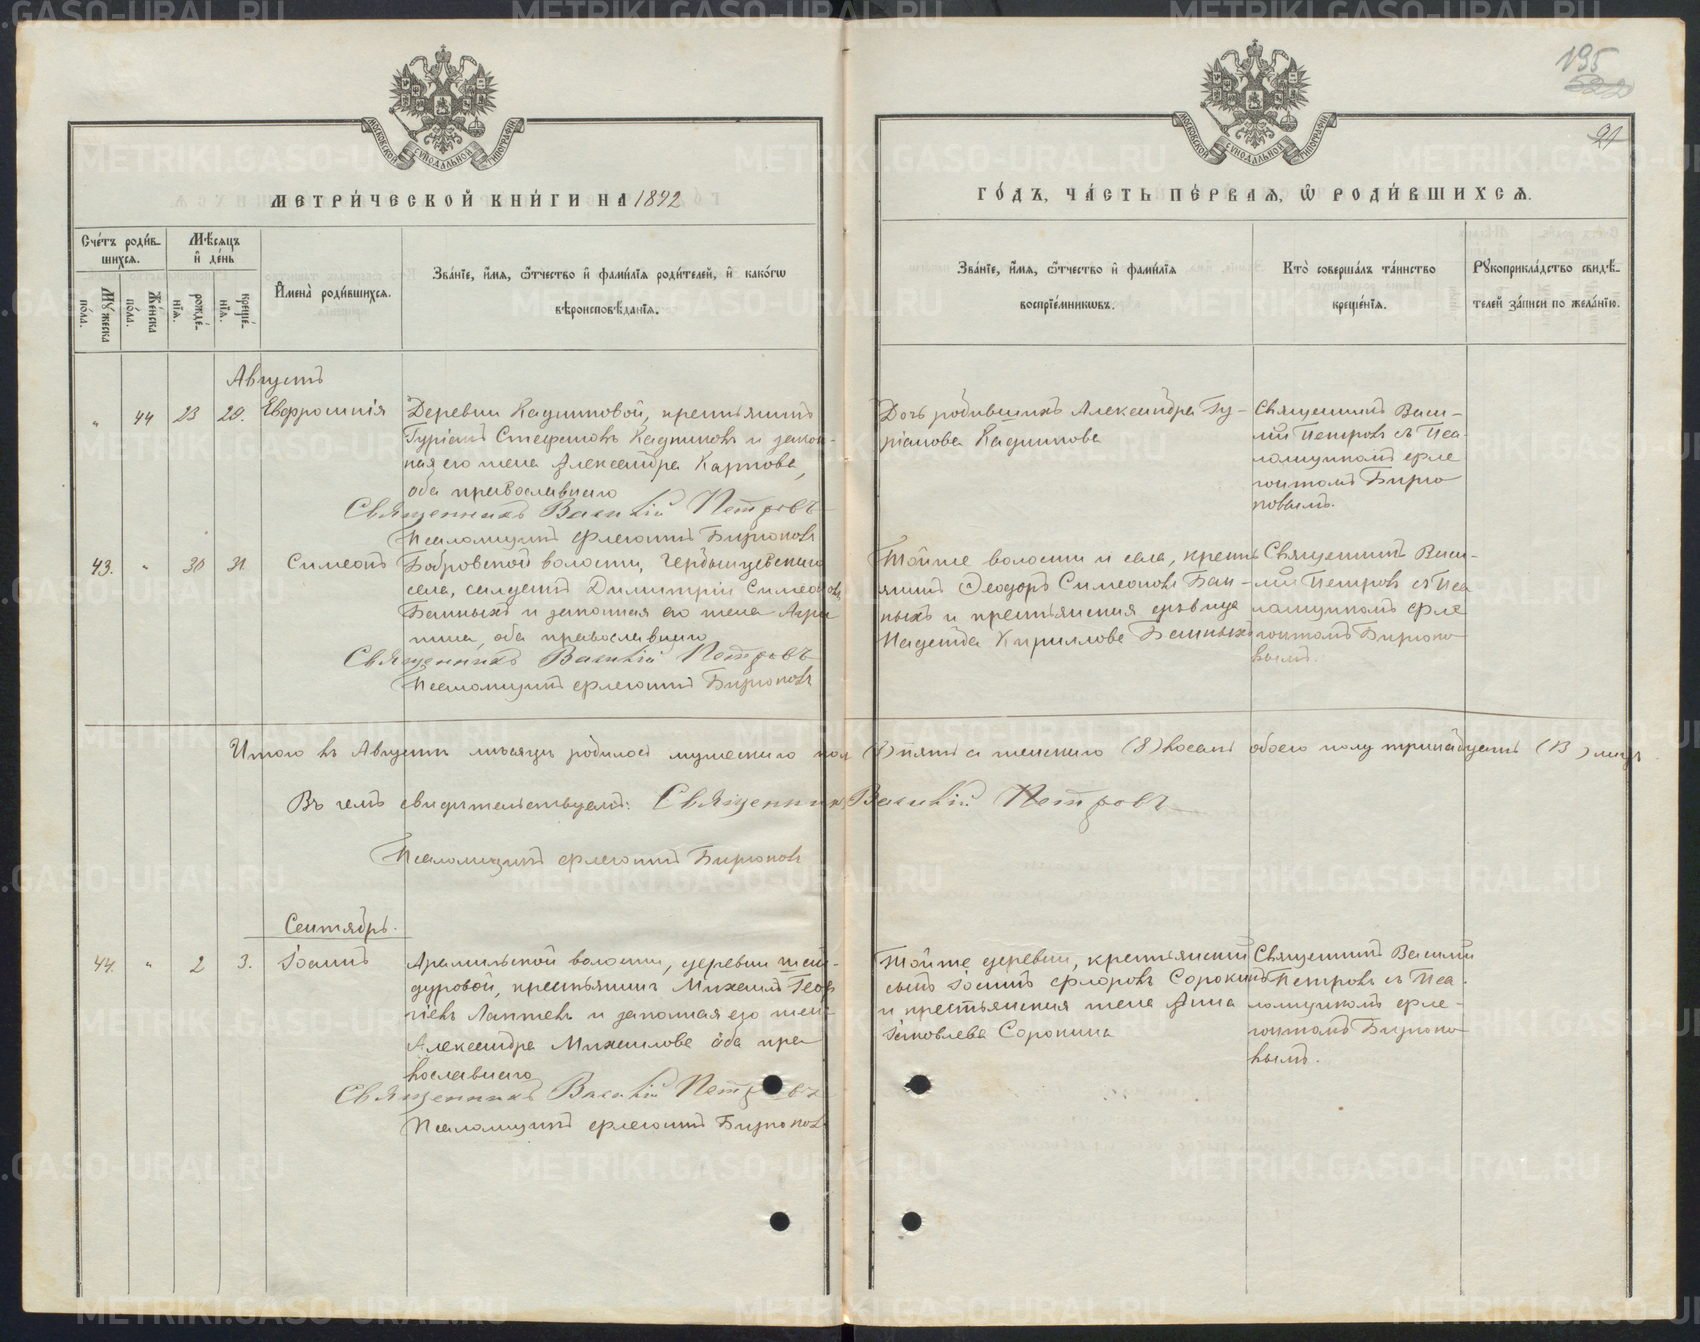 195
21
МОСКОВСКОЙ СѴНОДАЛЬНОЙ ТИПОГРАФІИ
МОСКОВСКОЙ СѴНОДАЛЬНОЙ ТИПОГРАФІИ
МЕТРИ́ЧЕСКОЙ КНИ́ГИ НА 1892
ГО́ДЪ, ЧА́СТЬ ПЕ́РВАЯ, Ѡ РОДИ́ВШИХСЯ.
Сче́тъ роди́вшихся.
Му́жеска по́ла.
Же́нска по́ла.
Мѣ́сяцъ и де́нь
рожде́нїя.
креще́нїя.
И҆мена̀ роди́вшихся.
Зва́нїе, и҆́мя, ѻ҆́тчество и҆ фами́лїя роди́телей, и҆ како́гѡ
вѣроисповѣ́данїя.
Зва́нїе, и҆́мя, ѻ҆́тчество и҆ фами́лїя
воспрїе́мникѡвъ.
Кто̀ соверша́лъ та́инство
креще́нїя.
Рꙋкоприкла́дство свидѣ́-
телей за́писи по жела́нїю.
Августъ
" 44 23 29. Евфросинія
Деревни Кадниковой, крестьянинъ
Гуріанъ Стефановъ Кадниковъ и закон-
ная его жена Александра Карпова,
оба православнаго
Священникъ Василій Петровъ
Псаломщикъ Флегонтъ Бирюковъ
Дочь родившихъ Александра Гу-
ріанова Кадникова
Священникъ Васи-
лій Петровъ съ Пса-
ломщикомъ Фле
гонтомъ Бирю
ковымъ.
43. " 30 31 Симеонъ
Бобровской волости,
села, Димитрій Симеоновъ
Банныхъ и законная его жена Агри
пина, оба православнаго
Священникъ Василій Петровъ
Псаломщикъ Флегонтъ Бирюковъ
Той же волости и села, кресть
янинъ Ѳеодоръ Симеоновъ Бан-
ныхъ и крестьянская дѣвица
Надежда Кириллова Банныхъ
Священникъ Васи-
лій Петровъ съ Пса
ломщикомъ Фле
гонтомъ Бирюко
вымъ.
Итого въ Августѣ мѣсяцѣ родилось мужескаго пол пять а женскаго (8) восемь обоего полу тринадцать (13) лицъ
Въ чемъ свидѣтельствуемъ: Священникъ Василій Петровъ
Псаломщикъ Флегонтъ Бирюковъ
Сентябрь.
44. " 2 3. Іоаннъ
Арамильской волости, деревни Шай-
дуровой, крестьянинъ Михаилъ Геор
гіевъ Лаптевъ и законная его жена
Александра Михаилова оба пра
вославнаго
Священникъ Василій Петровъ
Псаломщикъ Флегонтъ Бирюковъ
Той же деревни, крестьянскій
сынъ Іоаннъ Флоровъ Сорокинъ
и крестьянская жена Анна
Іаковлева Сорокина
Священникъ Василій
Петровъ съ Пса
ломщикомъ Фле-
гонтомъ Бирюко
вымъ.
METRIKI.GASO-URAL.RU